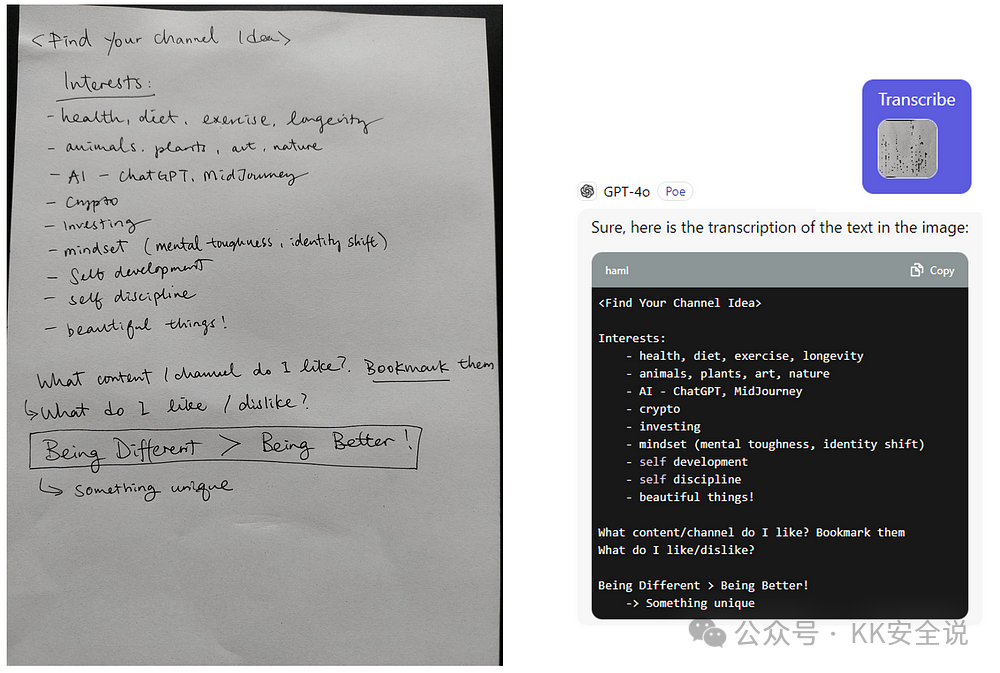 <Find your channel Idea>
Interests:
- health, diet, exercise, longevity
- animals, plants, art, nature
- AI - ChatGPT, MidJourney
- Crypto
- Investing
- mindset (mental toughness, identity shift)
- Self development
- self discipline
- beautiful things!
What content / channel do I like?. Bookmark them
↳ What do I like / dislike?
Being Different > Being Better!
↳ something unique
Transcribe
GPT-4o Poe
Sure, here is the transcription of the text in the image:
haml Copy
<Find Your Channel Idea>
Interests:
- health, diet, exercise, longevity
- animals, plants, art, nature
- AI - ChatGPT, MidJourney
- crypto
- investing
- mindset (mental toughness, identity shift)
- self development
- self discipline
- beautiful things!
What content/channel do I like? Bookmark them
What do I like/dislike?
Being Different > Being Better!
-> Something unique
公众号 · KK安全说